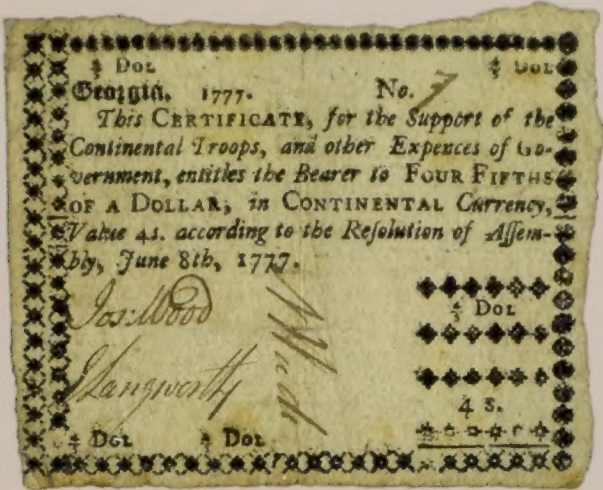 ⅘ Dol ⅘ Dol
Georgia. 1777. No. 7
This CERTIFICATE, for the Support of the
Continental Troops, and other Expences of Go-
vernment, entitles the Bearer to FOUR FIFTHS
OF A DOLLAR, in CONTINENTAL Currency,
Value 4s. according to the Reſolution of Aſſem-
bly, June 8th, 1777.
Jos: Wood
⅘ Dol
Langworthy
4 s.
⅘ Dol ⅘ Dol